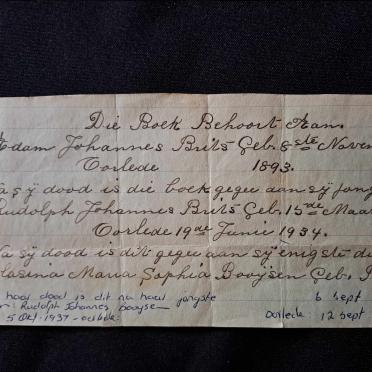 Die Boek Behoort Aan.
Adam Johannes Brits Geb. 8ste Novem
Oorlede 1893.
Na sÿ dood is die boek gegee aan sÿ jong
Rudolph Johannes Brits Geb. 15de Maar
Oorlede 19de Junie 1934.
Na sÿ dood is dit gegee aan sÿ enigste do
Lasina Maria Sophia Booÿsen Geb.
haar dood is dit na haar jongste 6 Sept
Rudolph Johannes Booysen
5 Okt. 1937 - oorlede: Oorlede: 12 Sept